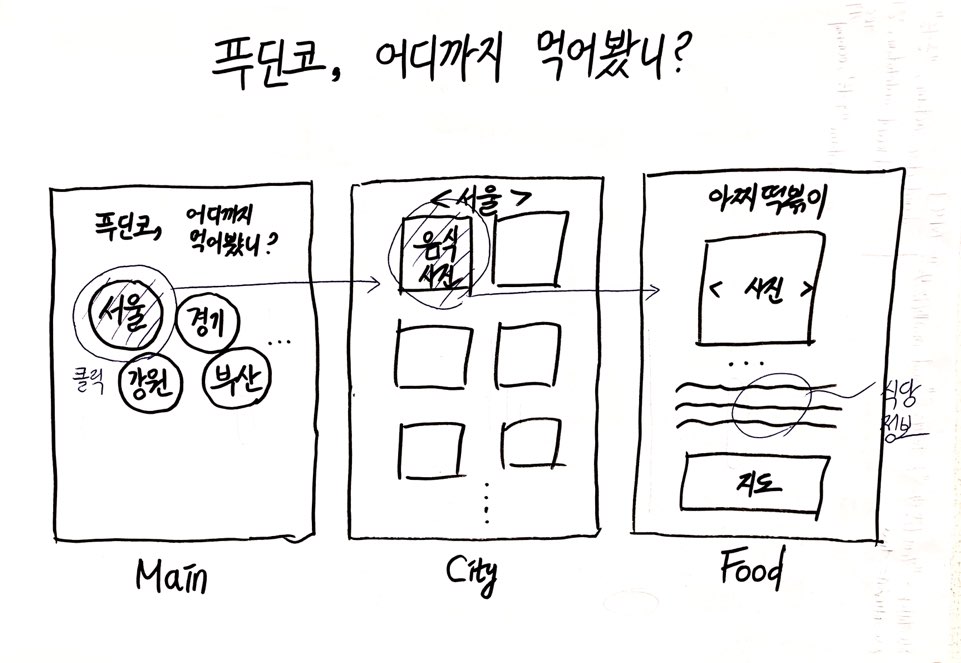 푸딘코, 어디까지 먹어봤니?
푸딘코, 어디까지
먹어봤니?
서울
경기
...
클릭
강원
부산
Main
< 서울 >
음식
사진
City
아찌떡볶이
< 사진 >
...
식당
정보
지도
Food